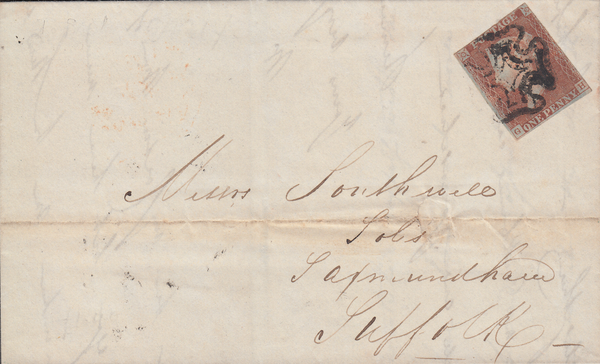 POSTAGE
ONE PENNY
Messrs Southwell
Solrs
Saxmundham
Suffolk